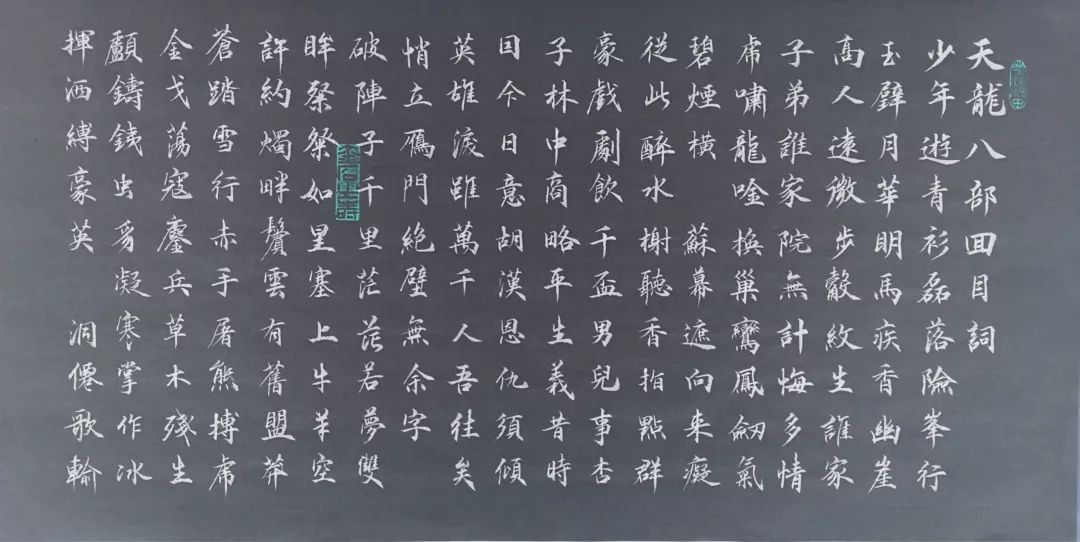 天龍八部囬目詞
少年遊青衫磊落險峯行
玉壁月華明馬疾香幽崖
高人遠微步縠紋生誰家
子弟誰家院無計悔多情
虎嘯龍唫換巢鸞鳳劒氣
碧煙橫 蘇幕遮向来癡
從此醉水榭聽香指點群
豪戲劇飲千盃男兒事杏
子林中商略平生義昔時
因今日意胡漢恩仇須傾
英雄淚雖萬千人吾往矣
悄立鴈門絕壁無余字
破陣子千里茫茫若夢雙
眸粲粲如星塞上牛羊空
許約燭畔鬢雲有舊盟莽
蒼踏雪行赤手屠熊搏虎
金戈蕩寇鏖兵草木殘生
顱鑄銕虫豸凝寒掌作冰
揮洒縛豪英 洞僊歌輸